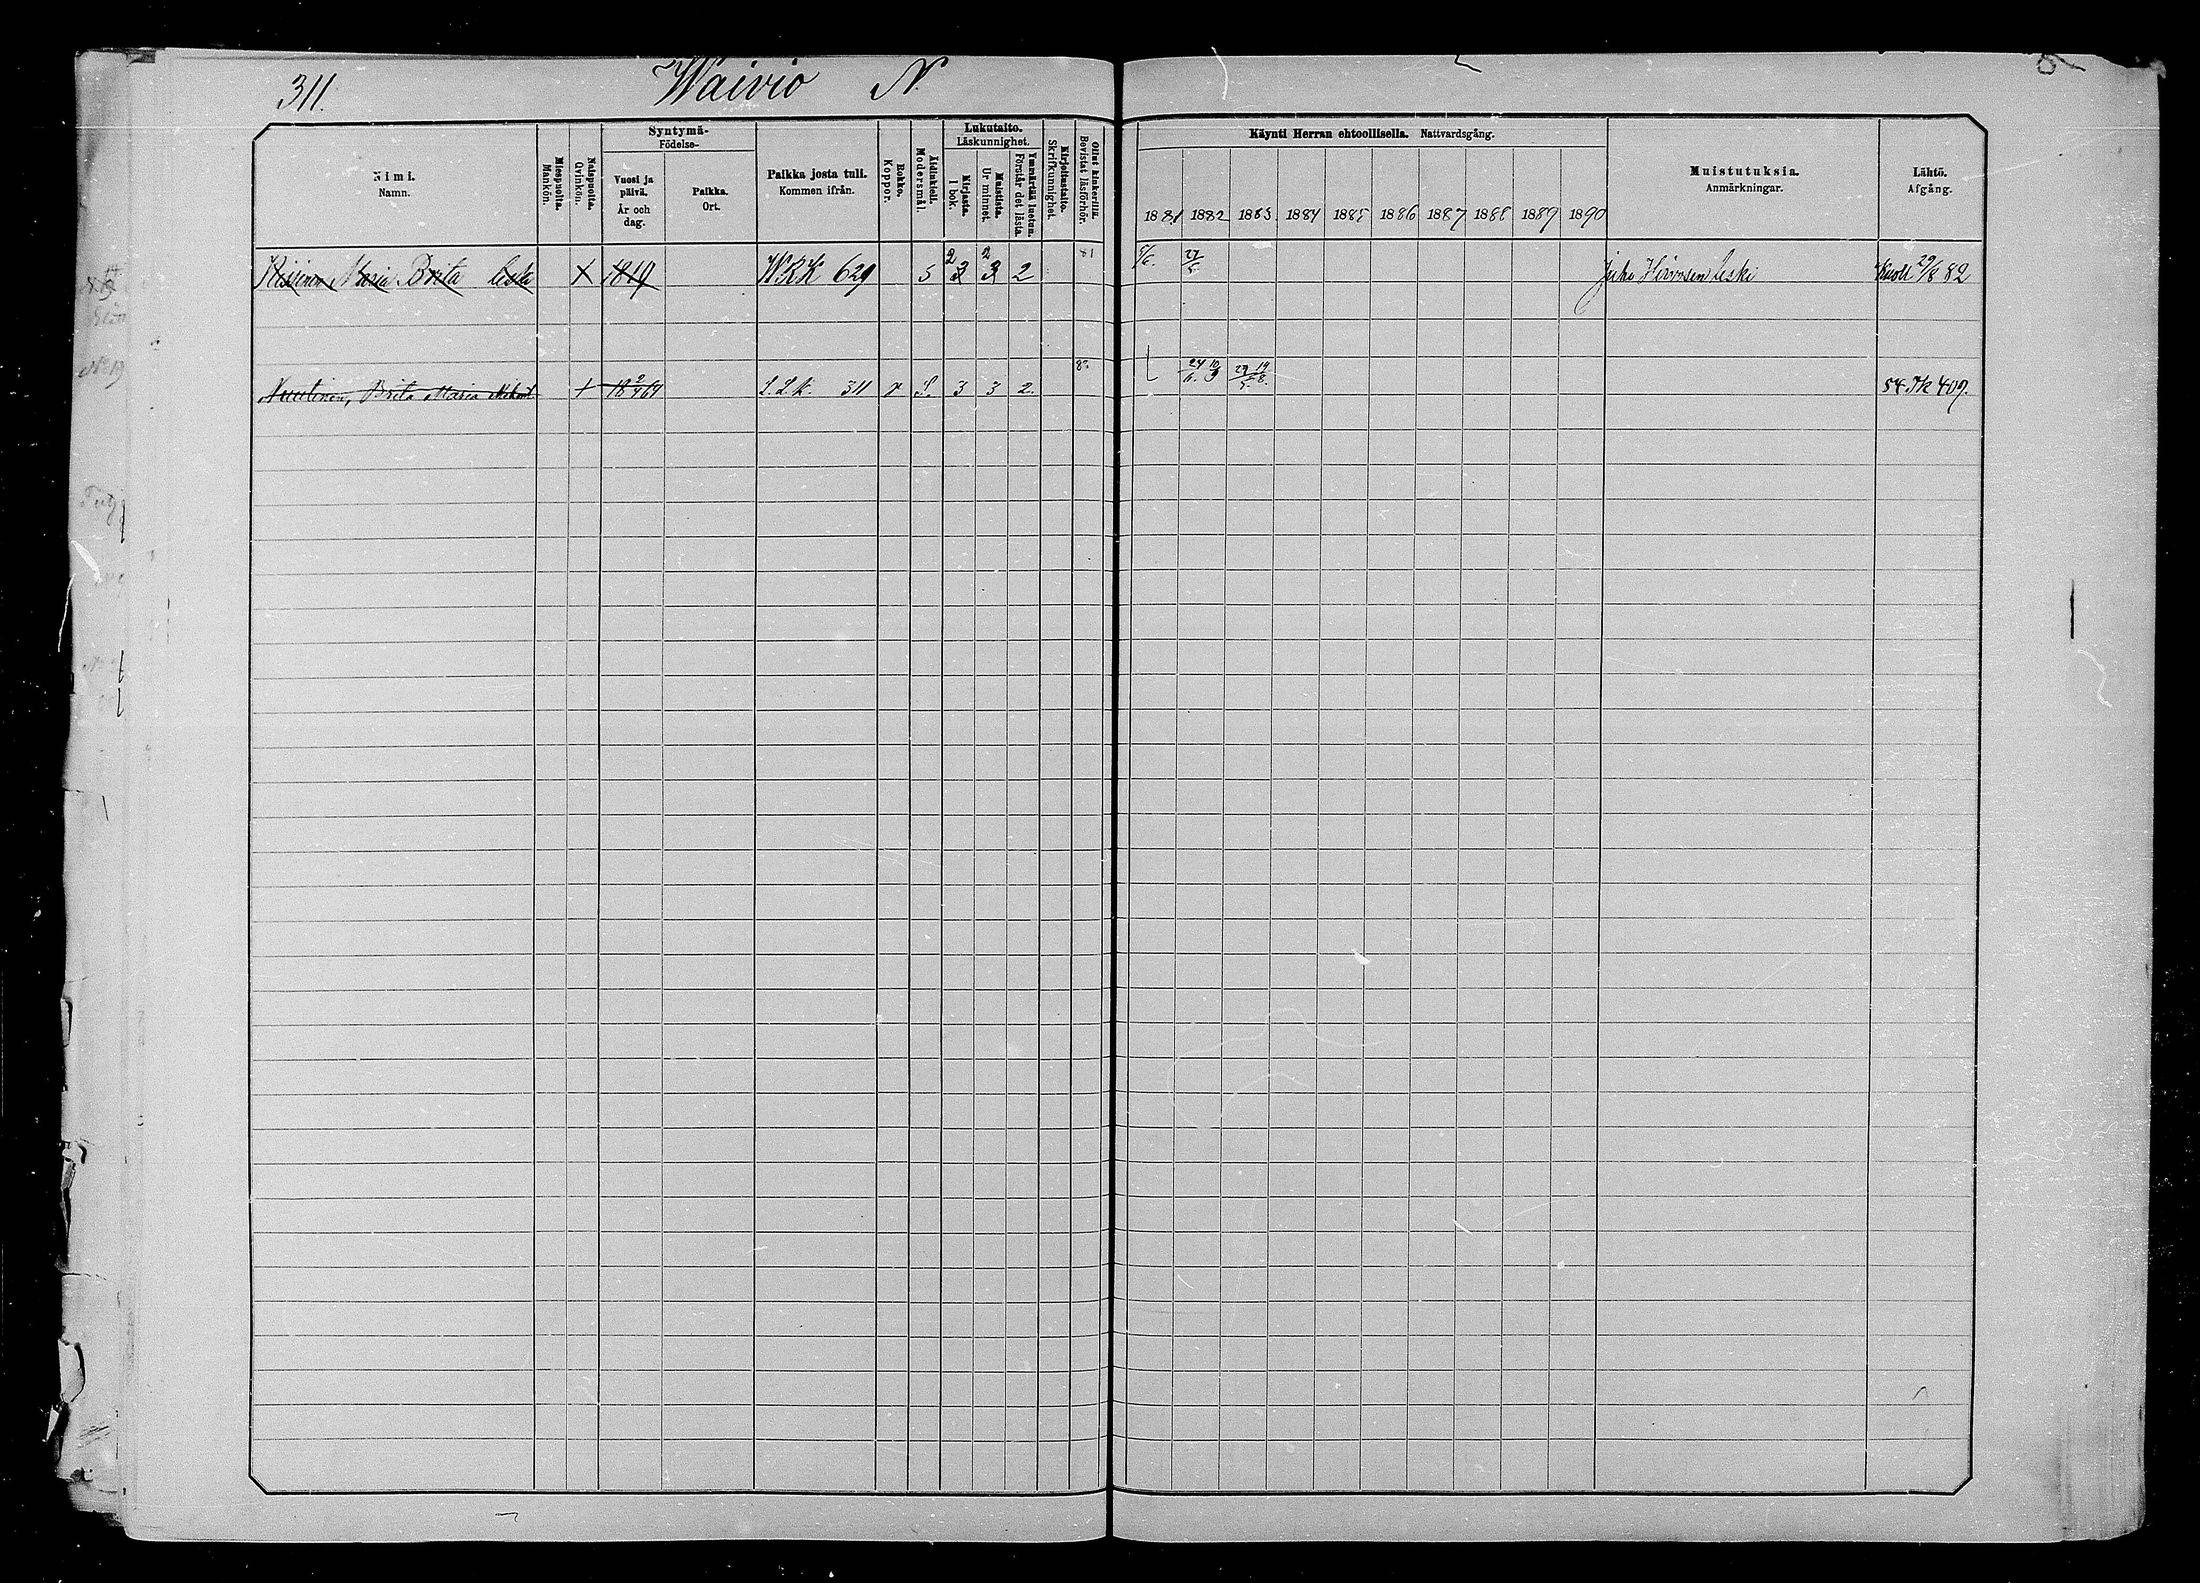 311.
Waivio N
Nimi.
Namn.
Miespuolta.
Mankön.
Naispuolta.
Qvinkön.
Syntymä-
Födelse-
Vuosi ja
päivä.
År och
dag.
Paikka.
Ort.
Paikka josta tuli.
Kommen ifrån.
Rokko.
Koppor.
Äidinkieli.
Modersmål.
Lukutaito.
Läskunnighet.
Kirjasta.
I bok.
Muistista.
Ur minnet.
Ymmärtää luetun.
Förstår det lästa.
Kirjoitustaito.
Skrifkunnighet.
Ollut kinkerillä.
Bevistat läsförhör.
Käynti Herran ehtoollisella. Nattvardsgång.
1881 1882 1883 1884 1885 1886 1887 1888 1889 1890
Muistutuksia.
Anmärkningar.
Lähtö.
Afgång.
Maria Brita leski + 1819 WRK 629 S 2 3 2 3 2 81 Juho leski Kuoli 29/8 82
Brita Maria + 18 2/4 64 L.L.k. 311 r S. 3 3 2. 24/6. 19/9 54 409.